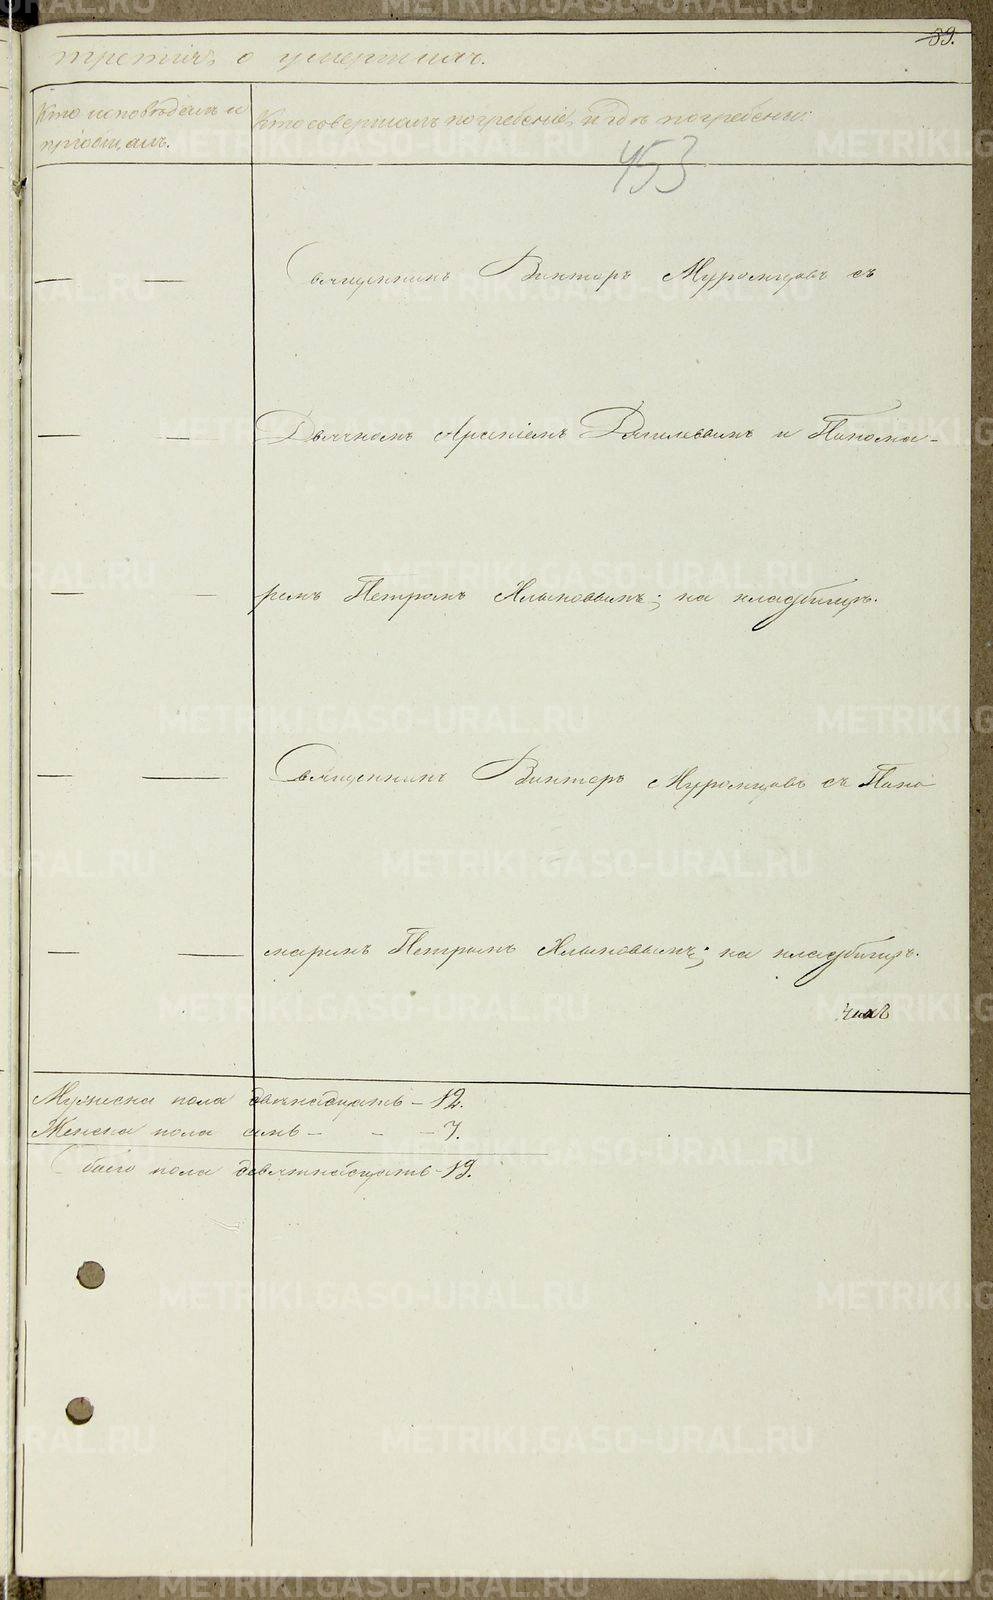 39.
третiя, о умершихъ.
Кто исповѣдалъ и
прiобщалъ.
Кто совершалъ погребенiе, и гдѣ погребены.
453
Священникъ Викторъ Муромцовъ съ
Дьячкомъ Арсенiемъ и Понома-
ремъ Петромъ Ялыновымъ; на кладбищѣ.
Священникъ Викторъ Муромцовъ съ Поно
маремъ Петромъ Ялыновымъ; на кладбищѣ.
Мужеска пола двѣнадцать - 12.
Женска пола семь - - - 7.
Обоего пола девятнадцать - 19.
METRIKI.GASO-URAL.RU